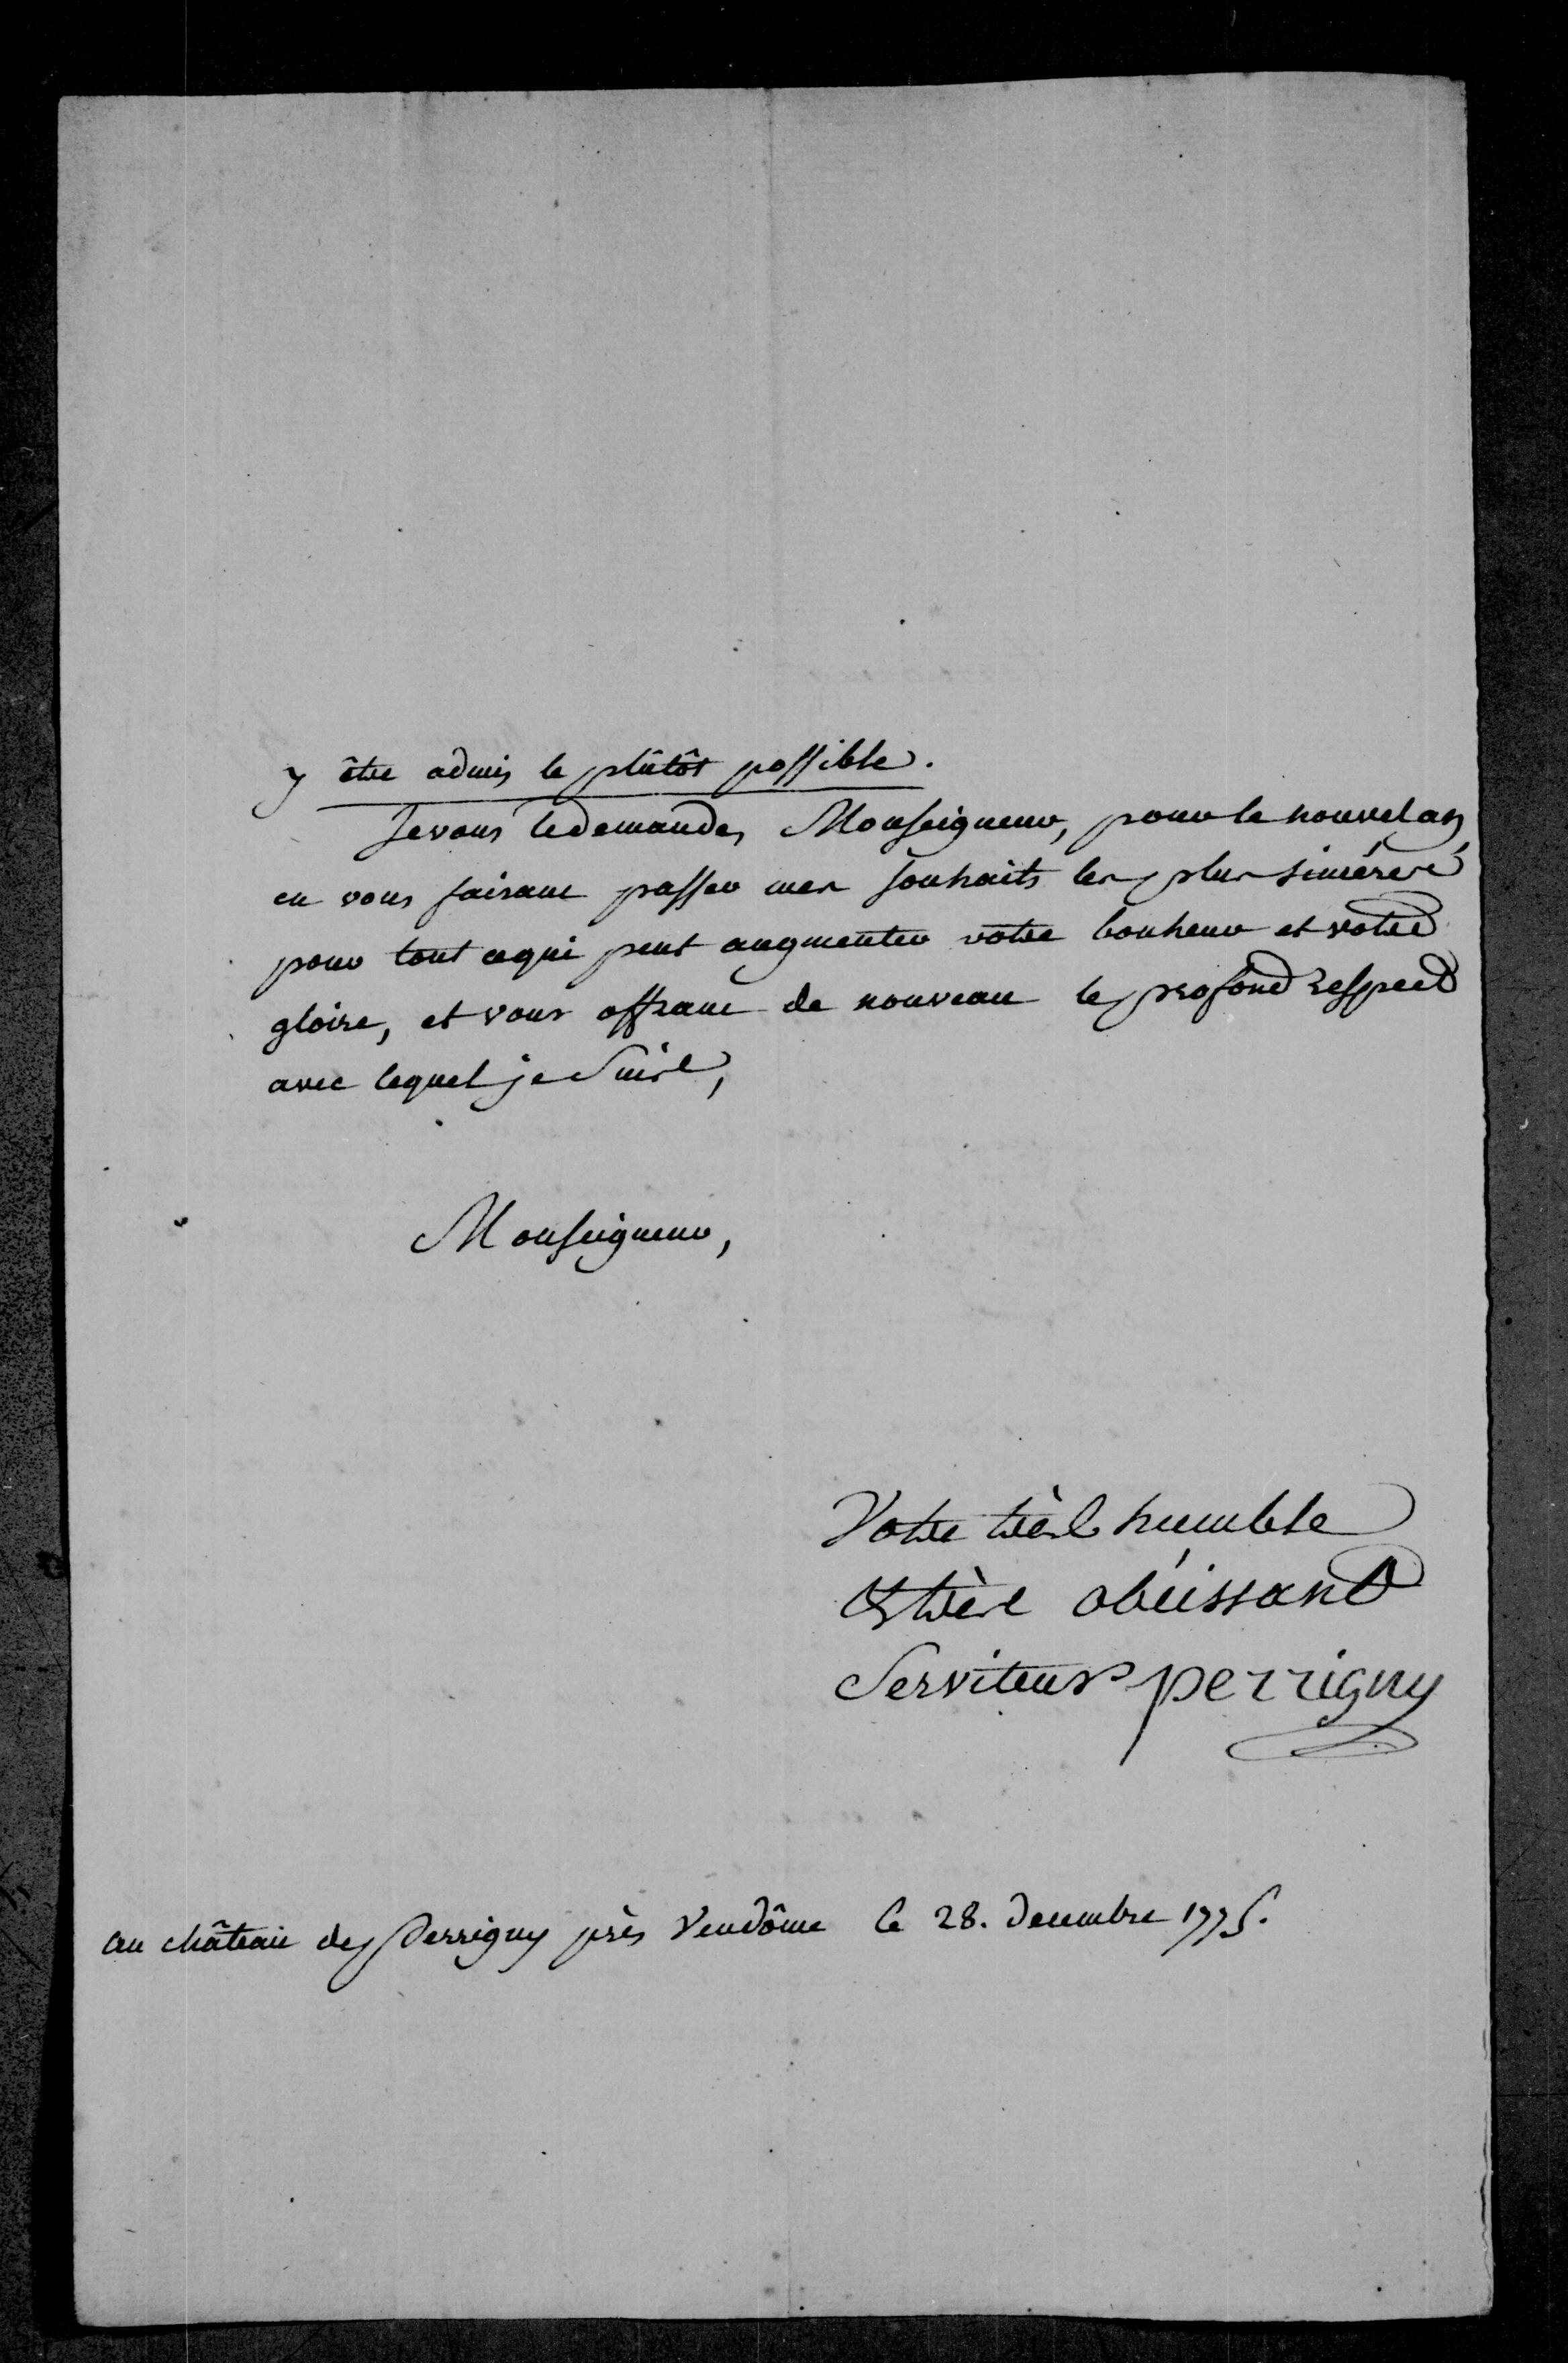 y être admis le plûtôt possible.
Je vous le demande, Monseigneur, pour le nouvel an,
en vous faisant passer mes souhaits les plus sincéres
pour tout ce qui peut augmenter votre bonheur et votre
gloire, et vous offrant de nouveau le profond respect
avec lequel je suis,
Monseigneur,
Votre très humble
& très obéissant
Serviteur perrigny
au château de Perrigny près Vendôme le 28. decembre 1775.